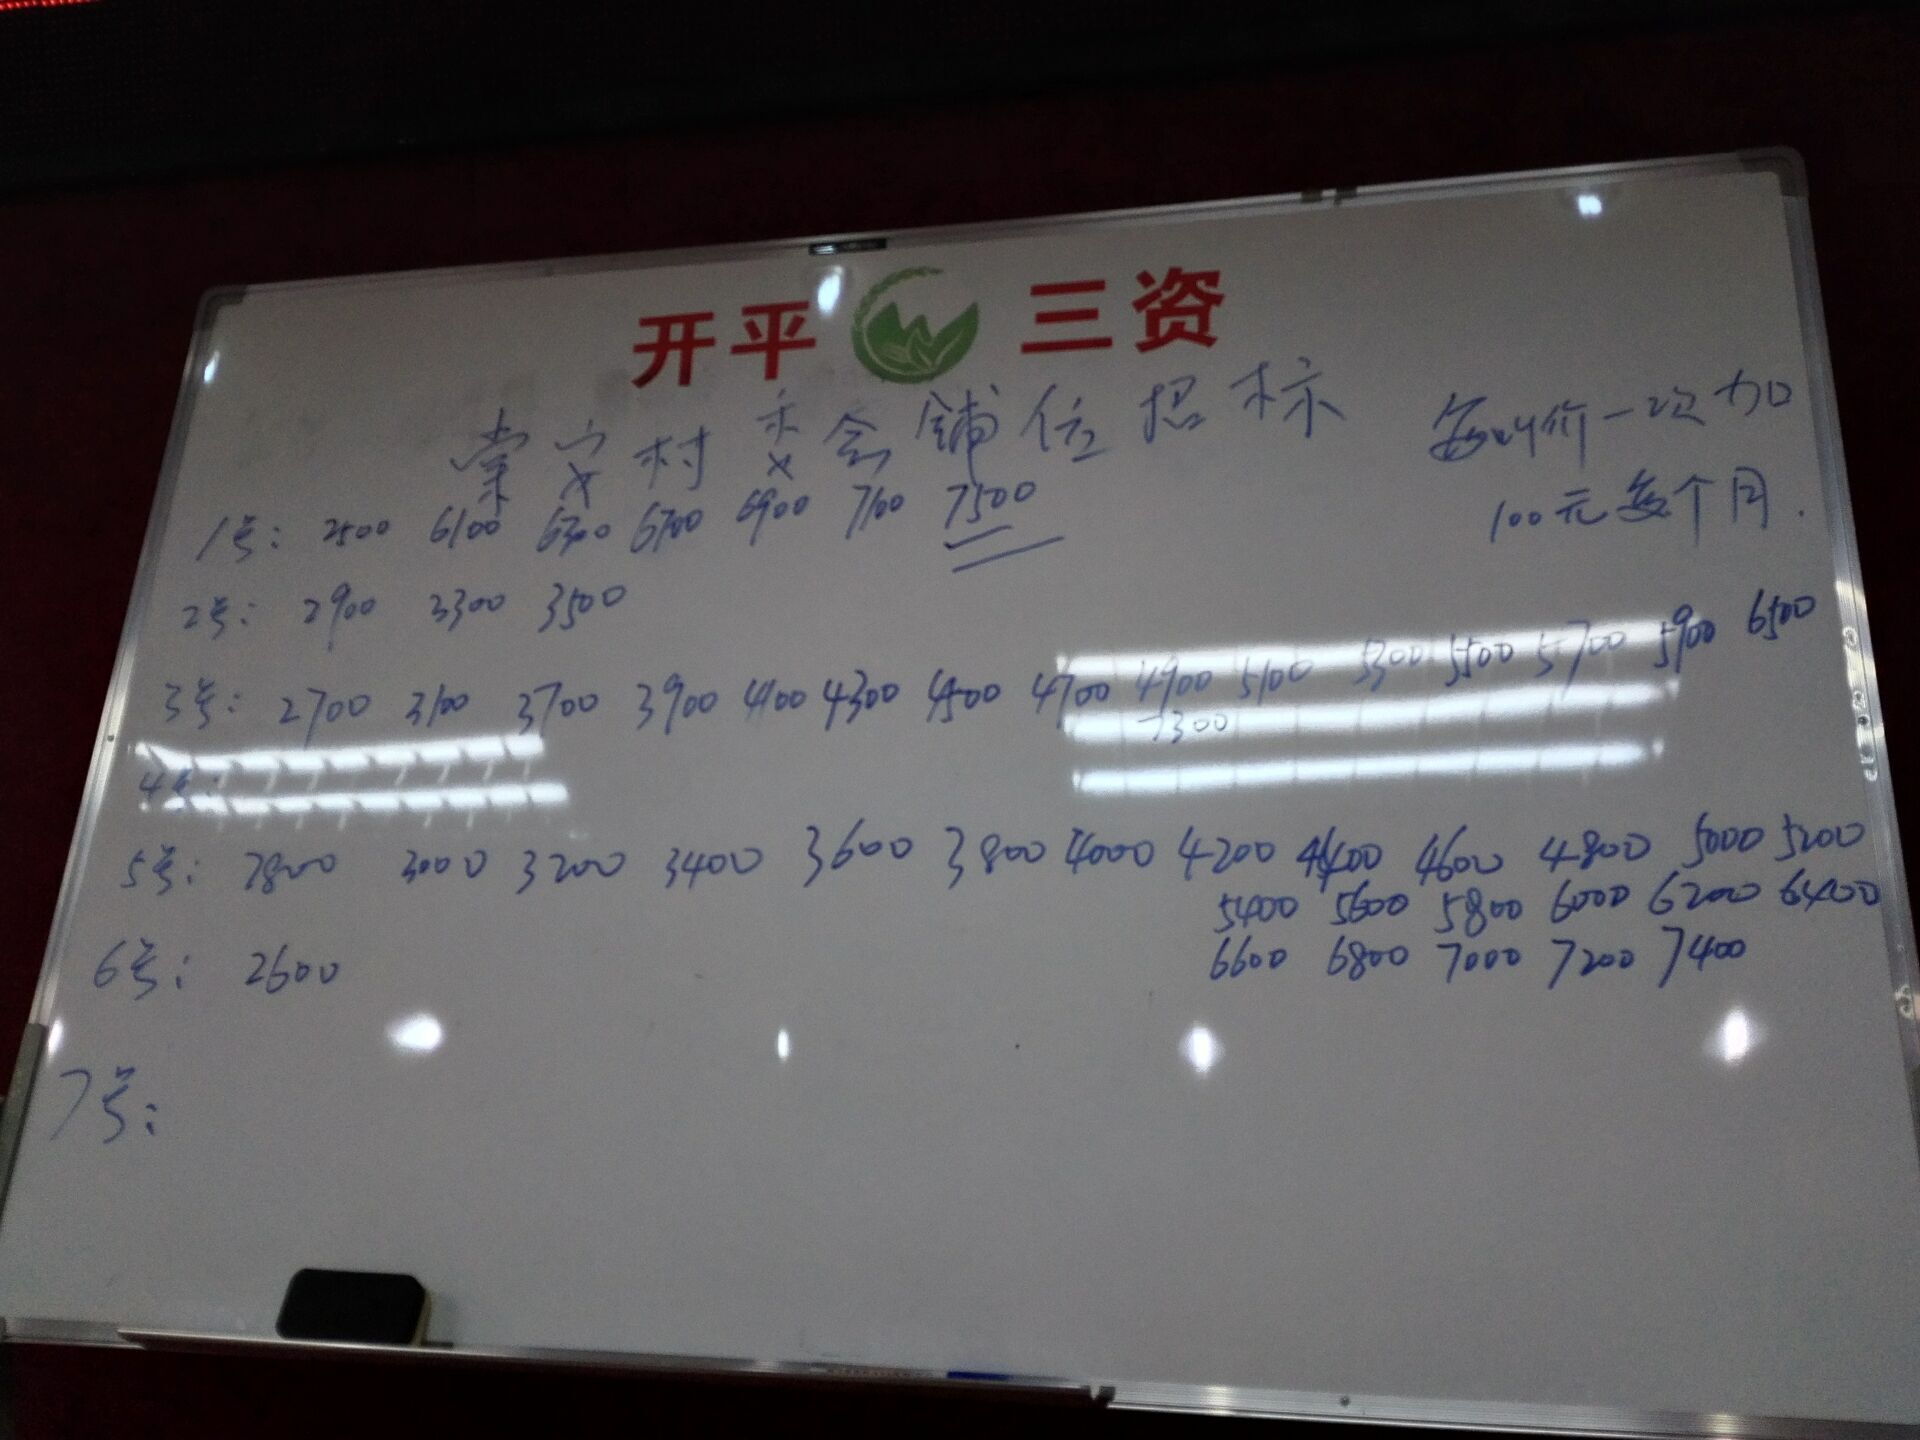 开平 三资
安村委会铺位招标
每叫价一次加
100元每个月.
1号: 2500 6100 6300 6700 6900 7100 7500
2号: 2900 3300 3500
3号: 2700 3100 3700 3900 4100 4300 4500 4700 4900 5100 5300 5500 5700 5900 6500
7300
4号:
5号: 2800 3000 3200 3400 3600 3800 4000 4200 4400 4600 4800 5000 5200
5400 5600 5800 6000 6200 6400
6600 6800 7000 7200 7400
6号: 2600
7号: